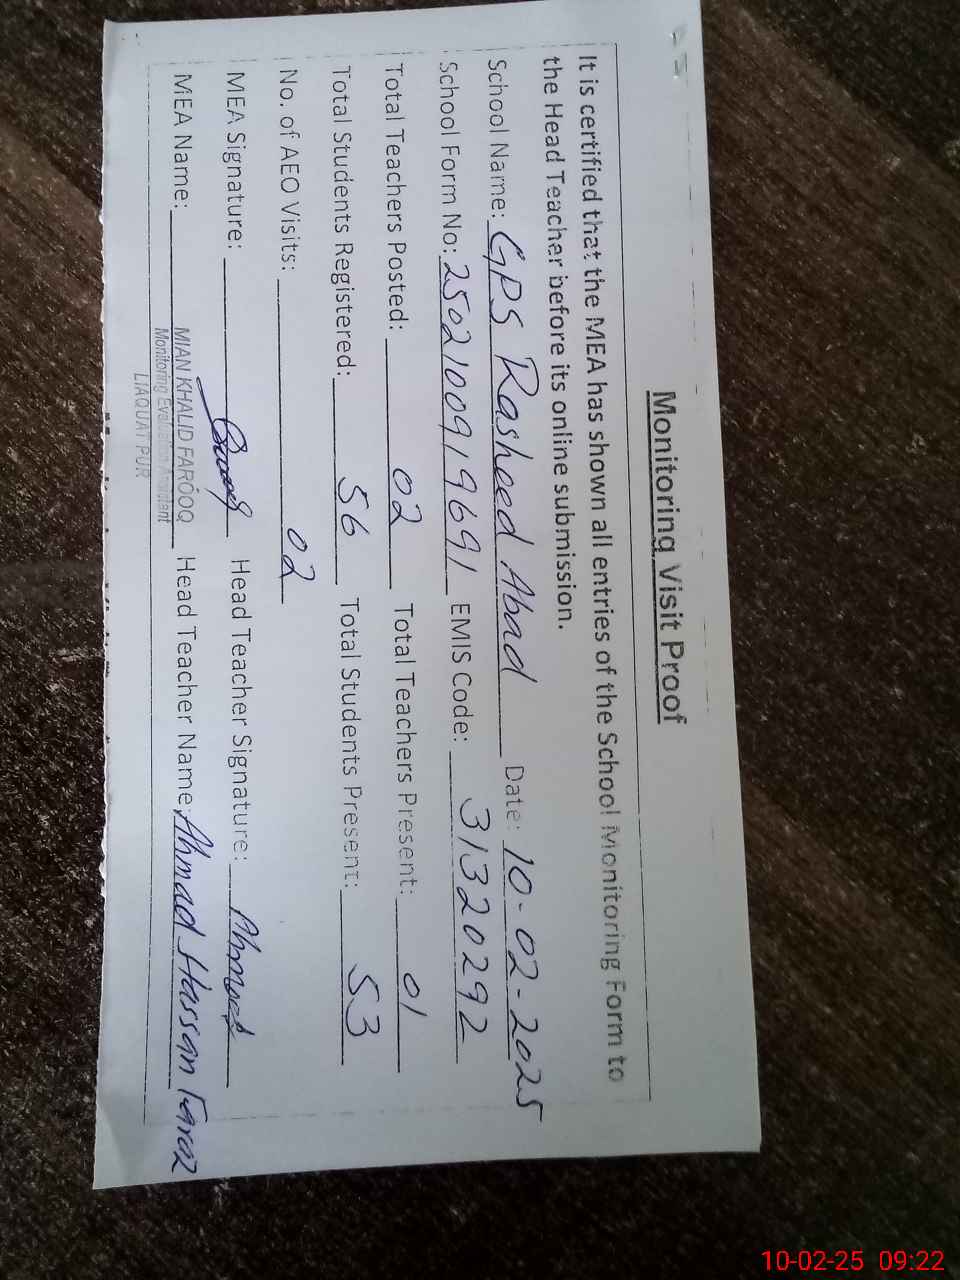 Monitoring Visit Proof
It is certified that the MEA has shown all entries of the School Monitoring Form to
the Head Teacher before its online submission.
School Name: GPS Rasheed Abad Date: 10-02-2025
School Form No: 2502100919691 EMIS Code: 31320292
Total Teachers Posted: 02 Total Teachers Present: 01
Total Students Registered: 56 Total Students Present: 53
No. of AEO Visits: 02
MEA Signature: Head Teacher Signature: Ahmad
MEA Name: MIAN KHALID FAROOQ Head Teacher Name: Ahmad Hassan Faraz
Monitoring Evaluation Assistant
LIAQUATPUR
10-02-25 09:22